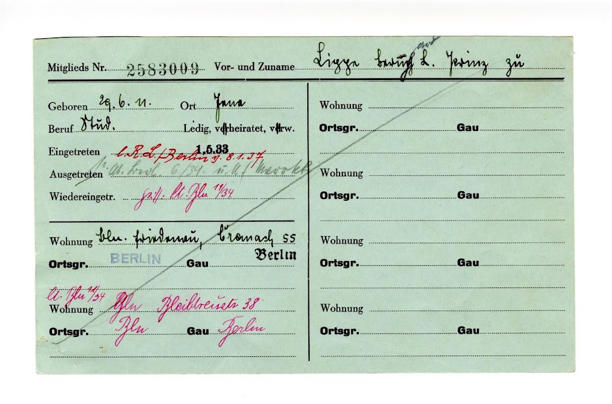 Mitglieds Nr. 2583009 Vor- und Zuname Lippe Prinz zu
Geboren 29.6.11. Ort Jena
Beruf Stud. Ledig, verheiratet, verw.
Eingetreten 1.5.33
l. R.L./Berlin v. 8.1.37
Ausgetreten
Wiedereingetr. lt. Bln 11/34
Wohnung Bln. Friedenau, Cranach 55
Ortsgr. BERLIN Gau Berlin
lt. Bln 11/34
Wohnung Bln Bleibtreustr 38
Ortsgr. Bln Gau Berlin
Wohnung
Ortsgr. Gau
Wohnung
Ortsgr. Gau
Wohnung
Ortsgr. Gau
Wohnung
Ortsgr. Gau